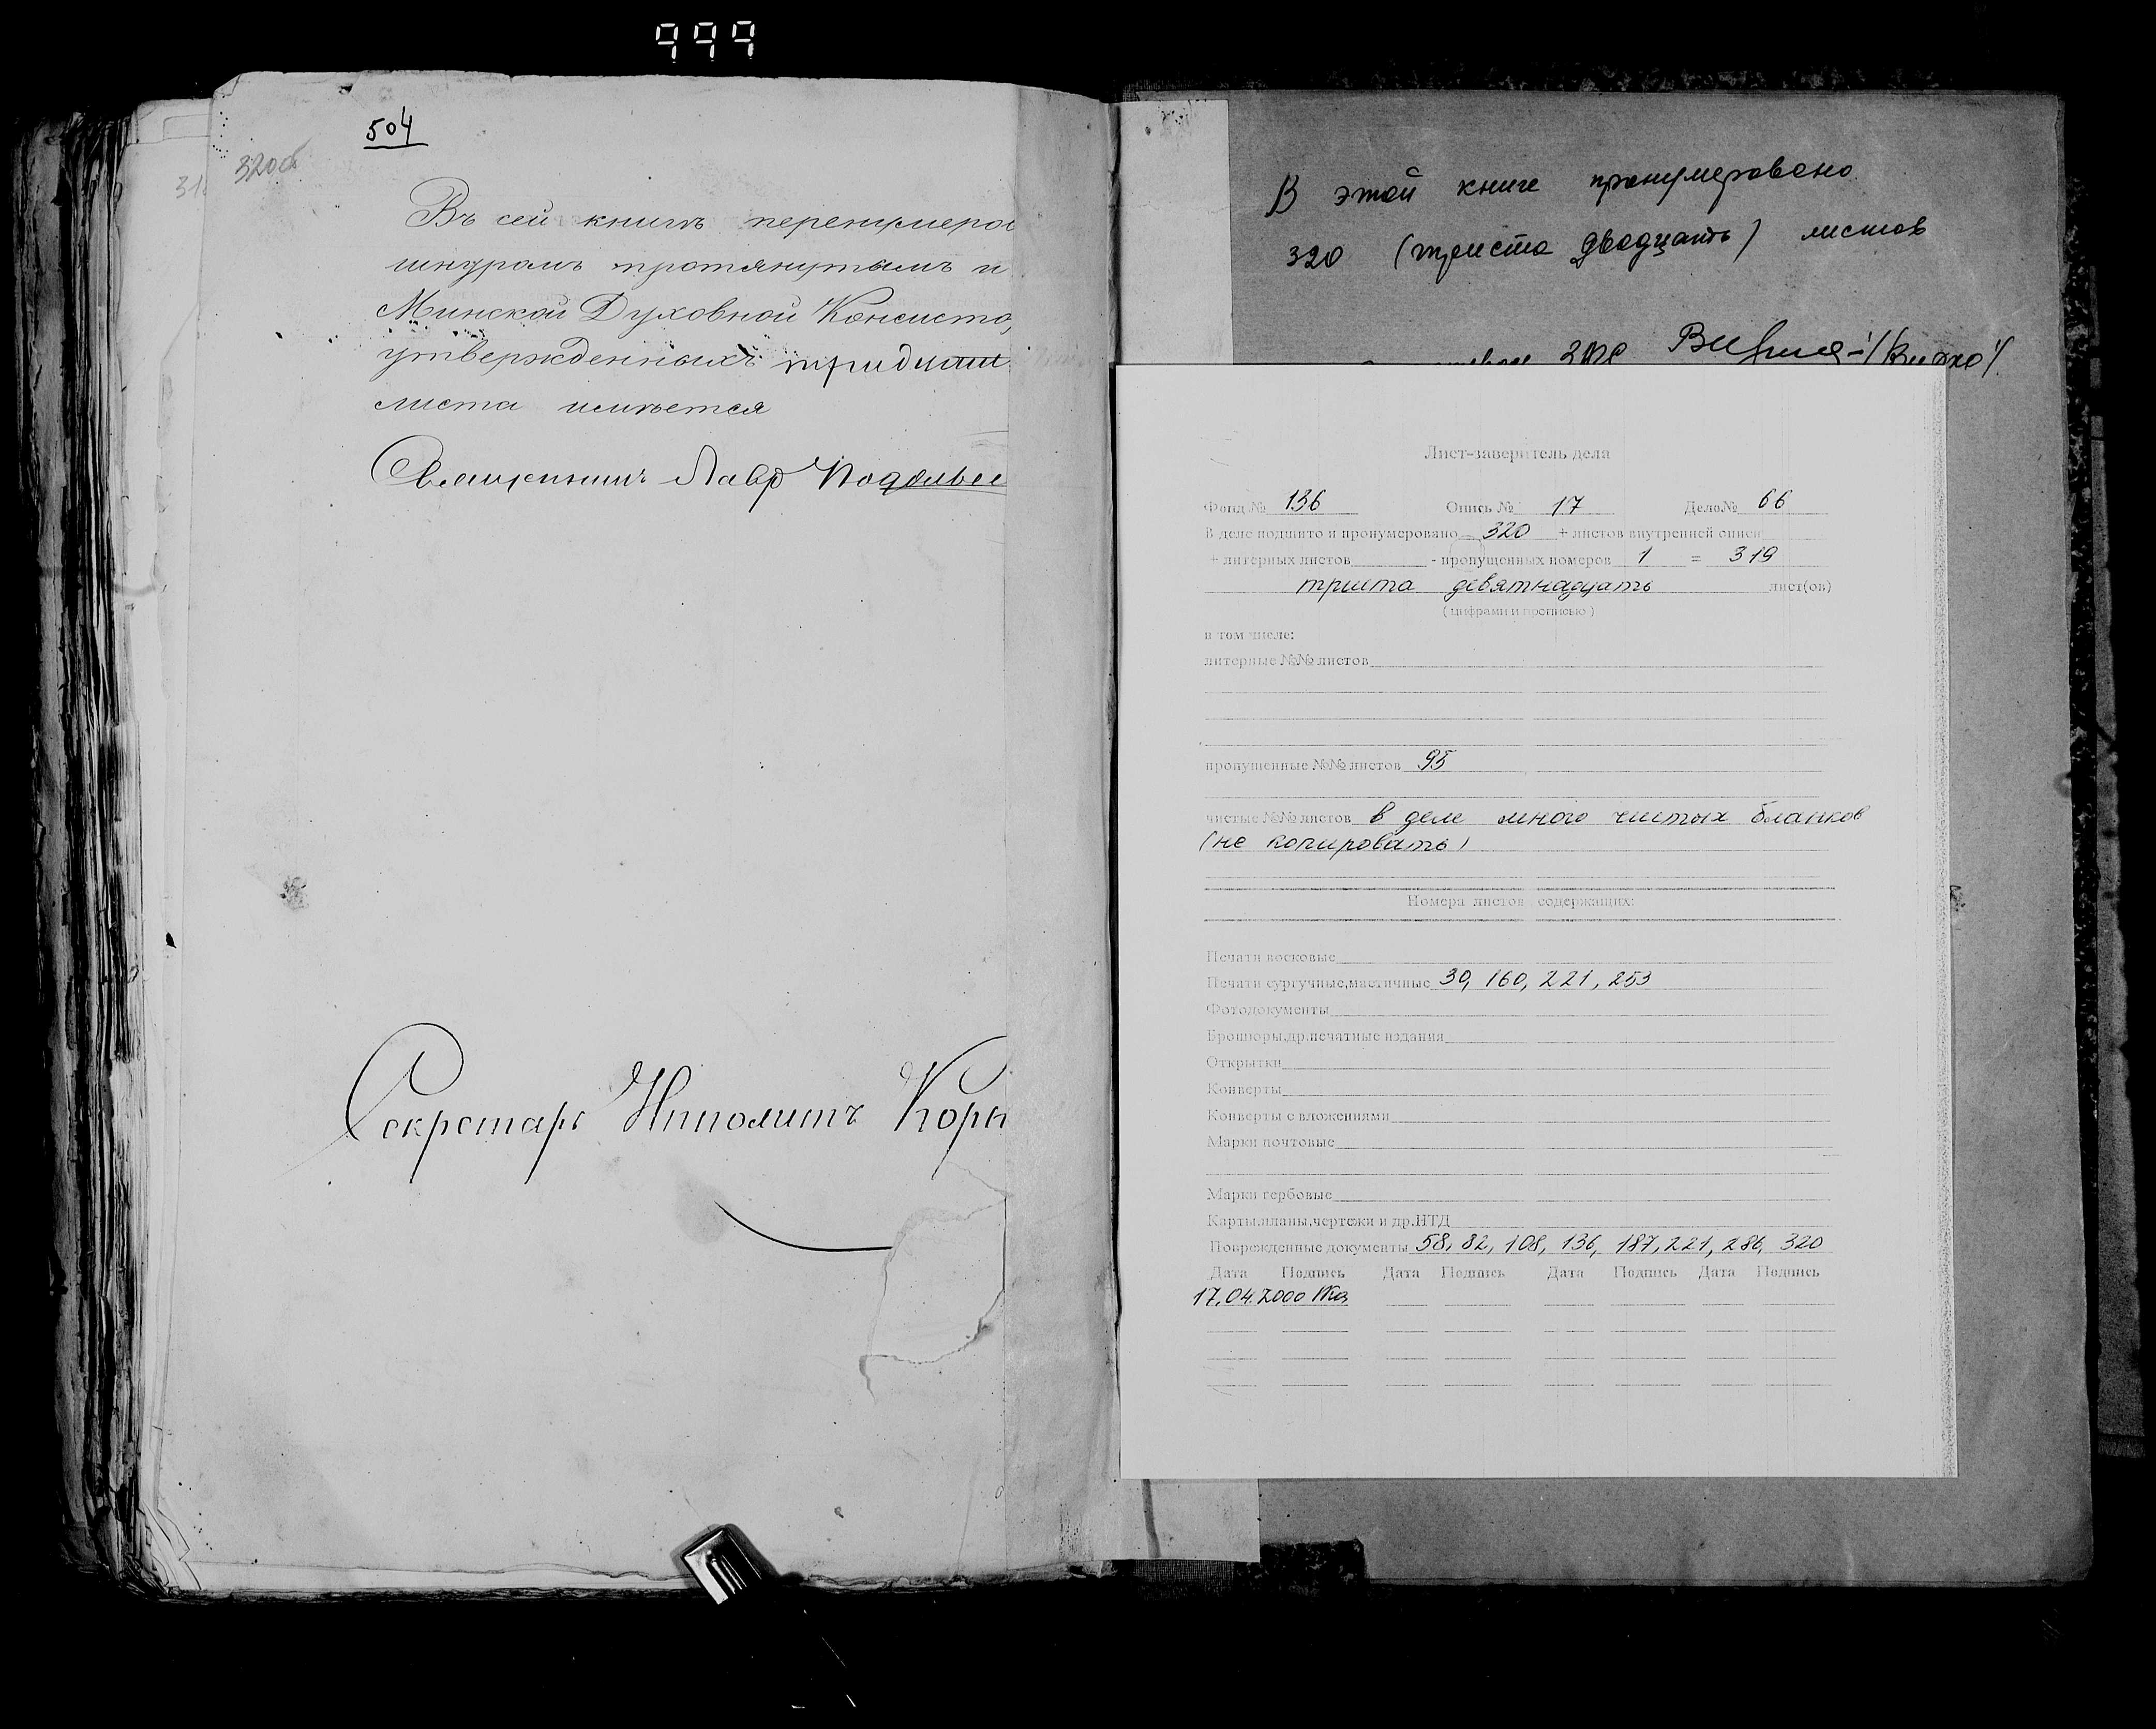 999
504
320об
Въ сей книгѣ перенумеро
шнуромъ протянутымъ и
Минской Духовной Консисто
утвержденныхъ тридцат
листа имѣется
Священникъ Лавр
Секретарь Ипполитъ Корн
В этой книге пронумеровано
320 (триста двадцать) листов
Лист-заверитель дела
Фонд № 136 Опись № 17 Дело№ 66
В деле подшито и пронумеровано 320 + листов внутренней описи
+ литерных листов - пропущенных номеров 1 = 319
триста девятнадцать лист(ов)
(цифрами и прописью)
в том числе:
литерные №№ листов
пропущенные №№ листов 95
чистые №№ листов в деле много чистых бланков
(не копировать)
Номера листов содержащих:
Печати восковые
Печати сургучные,мастичные 30, 160, 221, 253
Фотодокументы
Брошюры,др.печатные издания
Открытки
Конверты
Конверты с вложениями
Марки почтовые
Марки гербовые
Карты,планы,чертежи и др.НТД
Поврежденные документы 58, 82, 108, 136, 187, 221, 286, 320
Дата Подпись Дата Подпись Дата Подпись Дата Подпись
17.04.2000